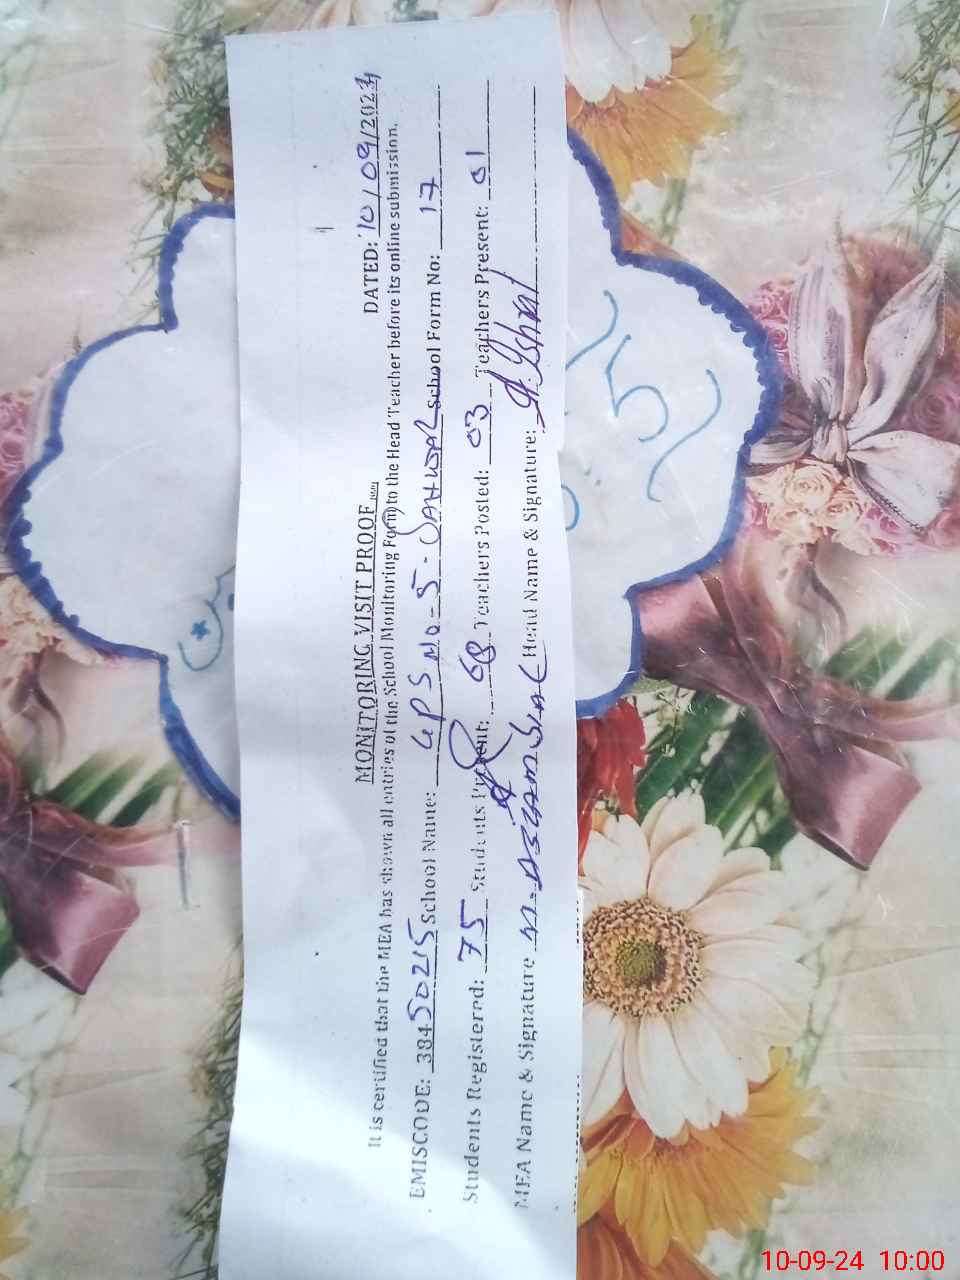 MONITORING VISIT PROOF
DATED: 10/09/2024
It is certified that the MEA has shown all entries of the School Monitoring Form to the Head Teacher before its online submission.
EMISCODE: 38450215 School Name: GPS No-5- School Form No: 17
Students Registered: 75 Students Present: 68 Teachers Posted: 03 Teachers Present: 01
MEA Name & Signature Head Name & Signature:
5
10-09-24 10:00